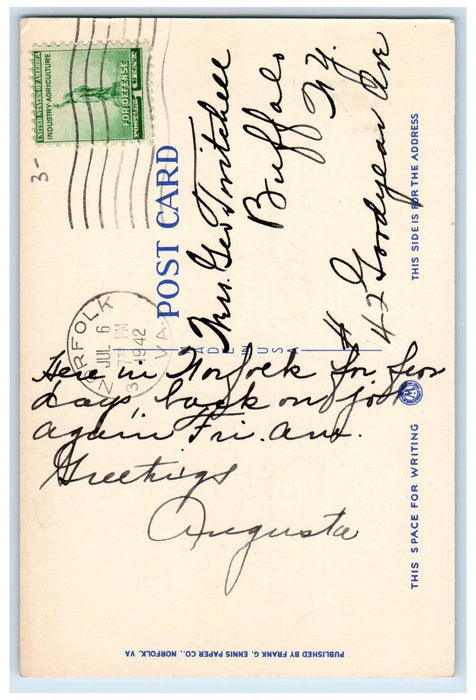 UNITED STATES OF AMERICA
INDUSTRY·AGRICULTURE
FOR DEFENSE
3-
NORFOLK
JUL 6
730 PM
1942
VA.
POST CARD
Mrs. Geo Twitchell
Buffalo
N.Y.
# 42 Goodyear Ave
THIS SIDE IS FOR THE ADDRESS
MADE IN USA
Here in Norfolk for few
days, back on job
again Fri. am.
Greetings
Augusta
THIS SPACE FOR WRITING
PUBLISHED BY FRANK G. ENNIS PAPER CO., NORFOLK, VA